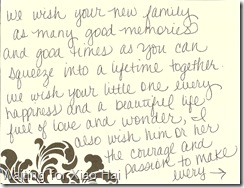 we wish your new family
as many good memories
and good times as you can
squeeze into a lifetime together.
we wish your little one every
happiness and a beautiful life
full of love and wonder, I
also wish him or her
the courage and
passion to make
every →
Waiting for Xiao Hai